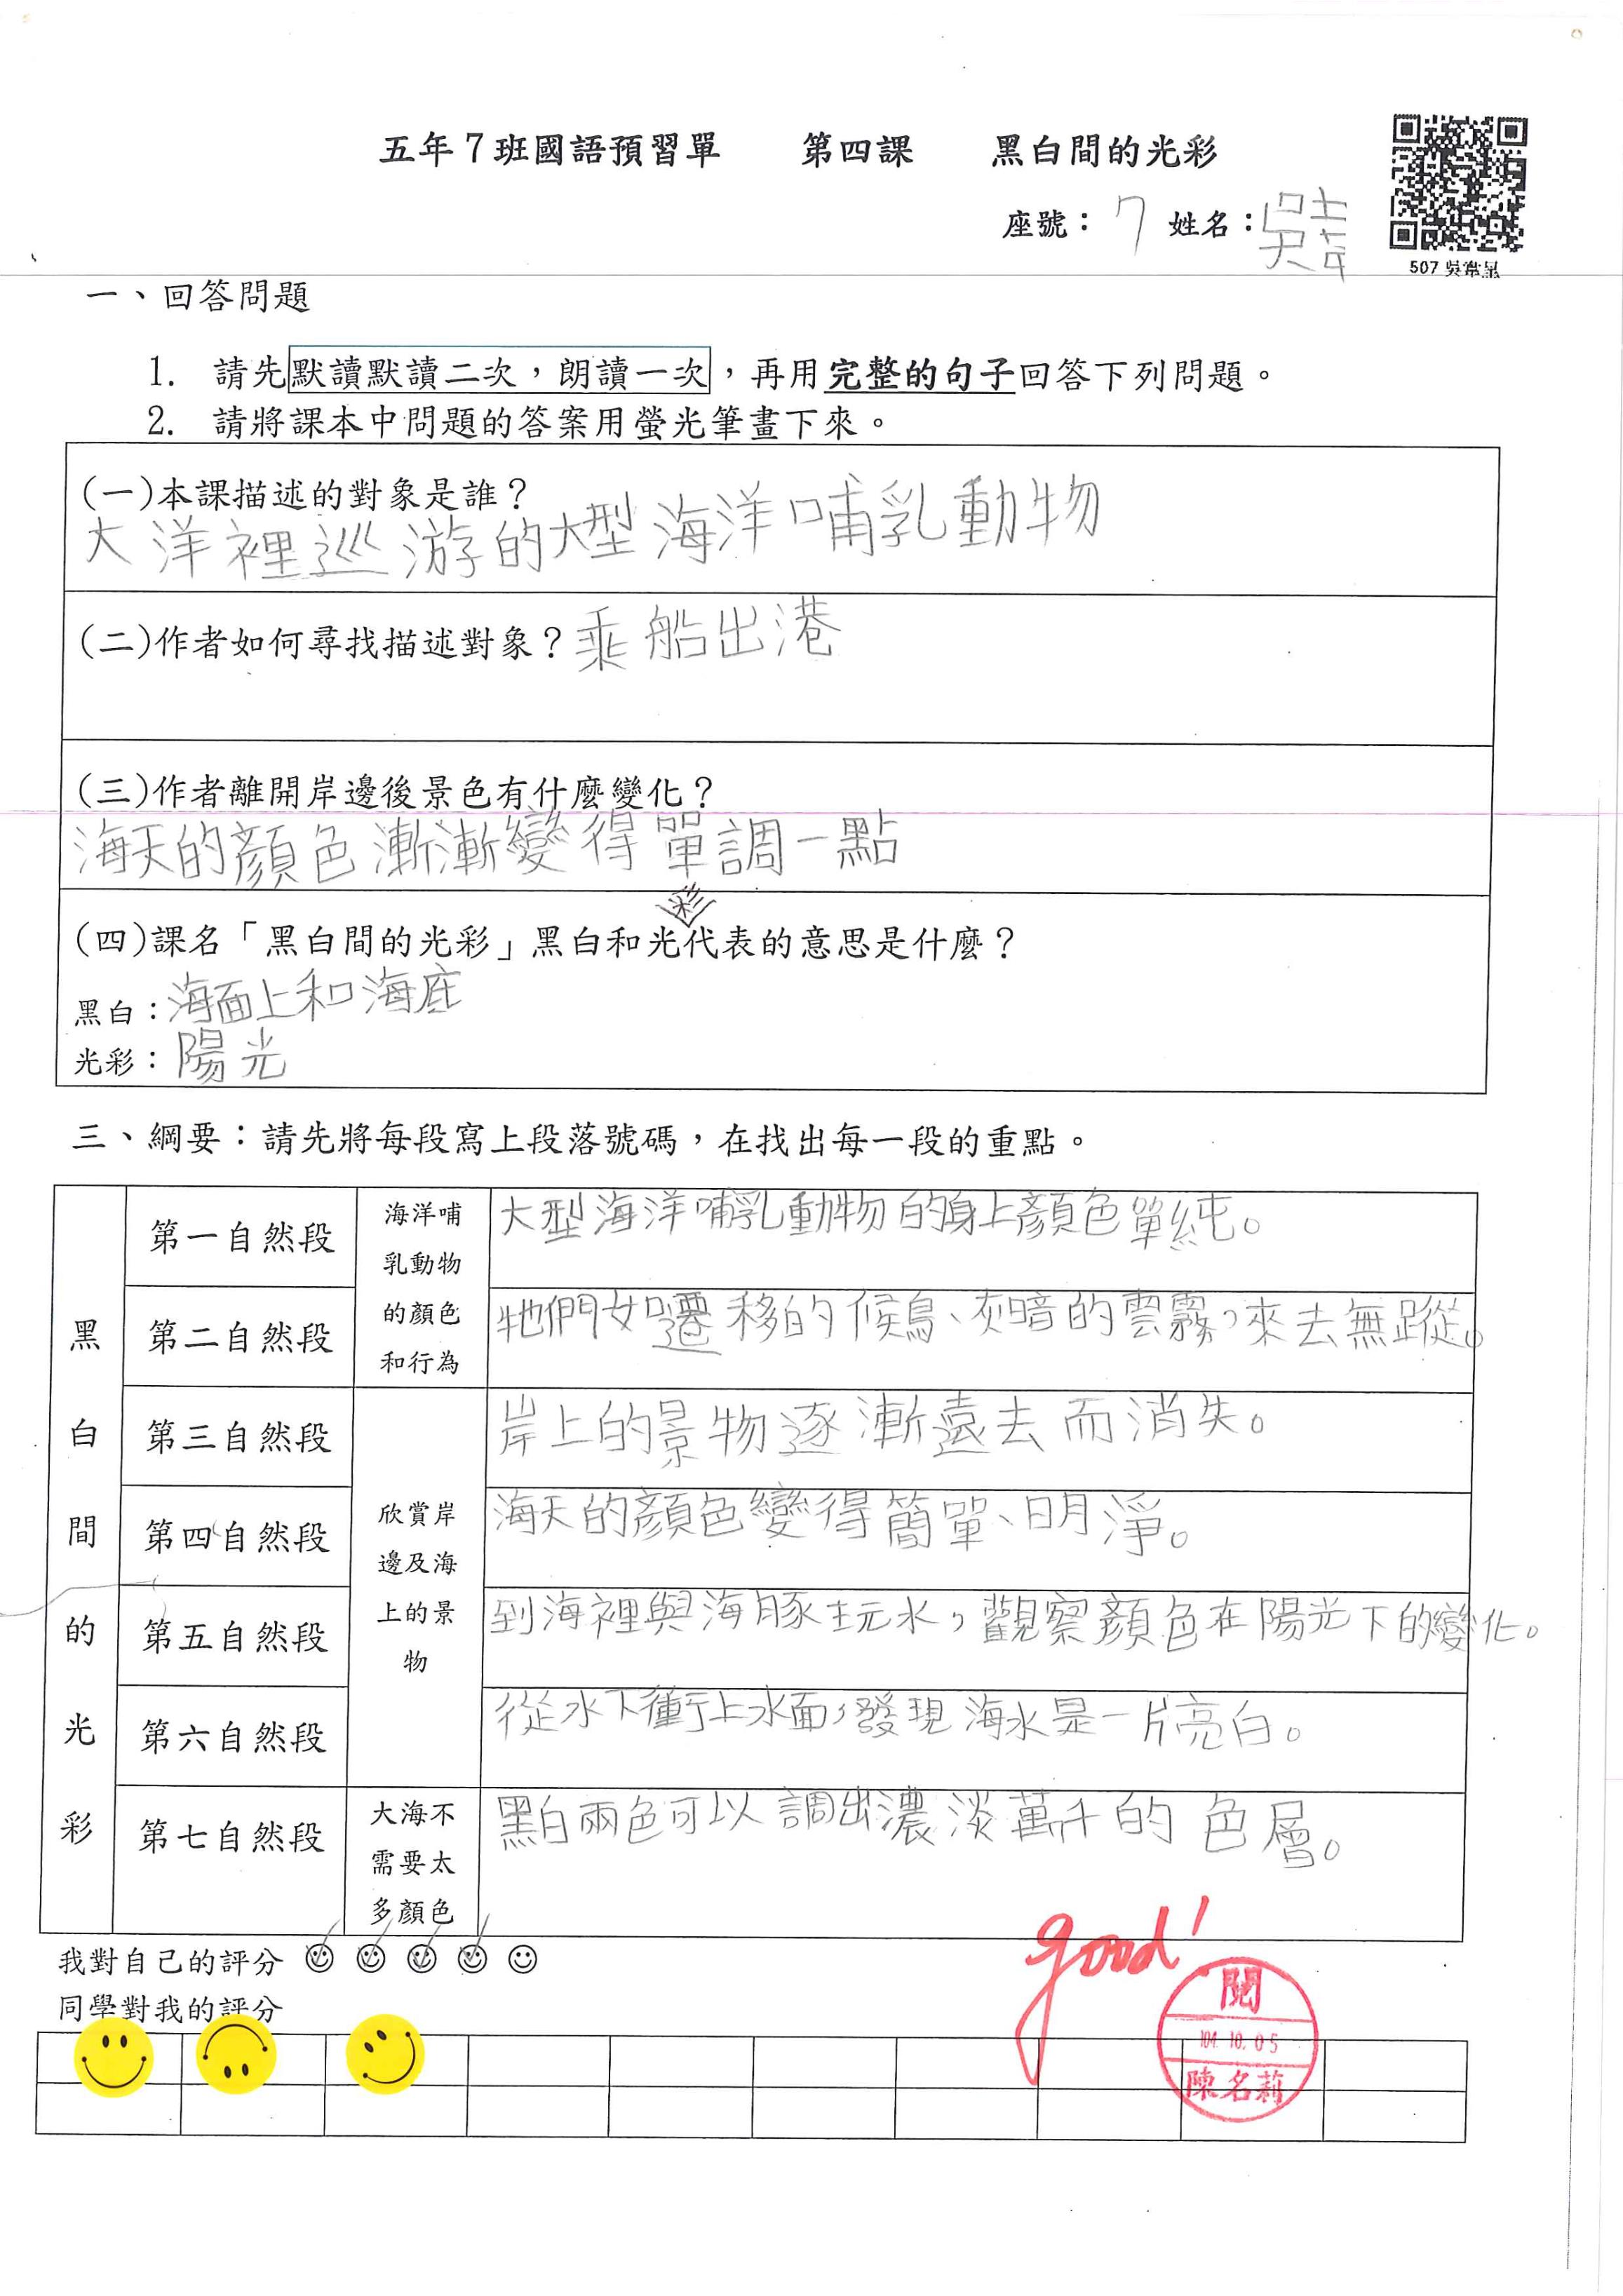 五年7班國語預習單 第四課 黑白間的光彩
座號：7 姓名：吳
507 吳
一、回答問題
1. 請先默讀默讀二次，朗讀一次，再用完整的句子回答下列問題。
2. 請將課本中問題的答案用螢光筆畫下來。
(一)本課描述的對象是誰？
大洋裡巡游的大型海洋哺乳動物
(二)作者如何尋找描述對象？乘船出港
(三)作者離開岸邊後景色有什麼變化？
海天的顏色漸漸變得單調一點
(四)課名「黑白間的光彩」黑白和光彩代表的意思是什麼？
黑白：海面上和海底
光彩：陽光
三、綱要：請先將每段寫上段落號碼，在找出每一段的重點。
黑白間的光彩
第一自然段
海洋哺
乳動物
的顏色
和行為
大型海洋哺乳動物的身上顏色單純。
第二自然段
牠們如遷移的候鳥、灰暗的雲霧，來去無蹤。
第三自然段
欣賞岸
邊及海
上的景
物
岸上的景物逐漸遠去而消失。
第四自然段
海天的顏色變得簡單、明淨。
第五自然段
到海裡與海豚玩水，觀察顏色在陽光下的變化。
第六自然段
從水下衝上水面，發現海水是一片亮白。
第七自然段
大海不
需要太
多顏色
黑白兩色可以調出濃淡萬千的色層。
我對自己的評分
同學對我的評分
good!
閱
104.10.05
陳名莉